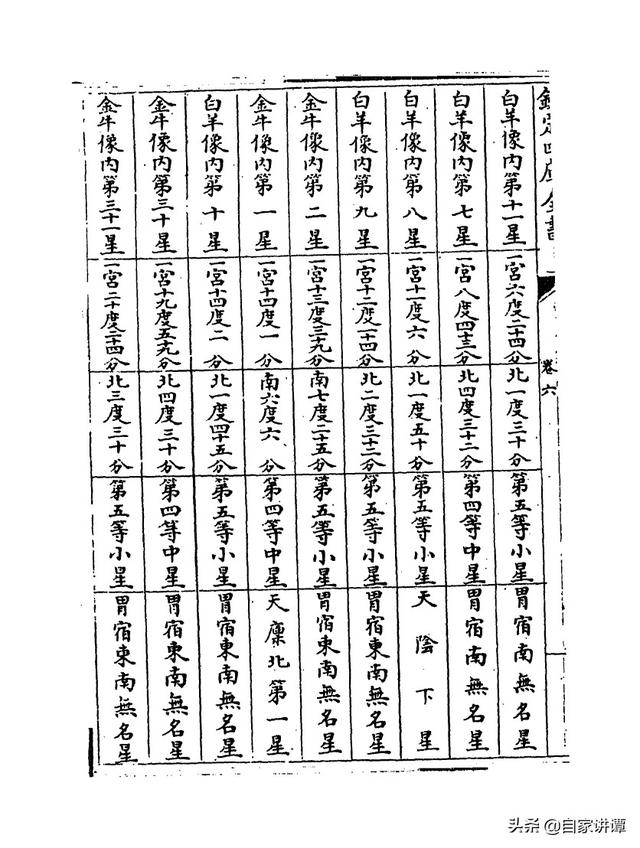 欽定四庫全書
卷六
白羊像内第十一星 一宮六度二十四分 北一度三十分 第五等小星 胃宿南無名星
白羊像内第七星 一宮八度四十三分 北四度三十二分 第四等中星 胃宿南無名星
白羊像内第八星 一宮十一度六分 北一度五十分 第五等小星 天陰下星
白羊像内第九星 一宮十二度二十四分 北二度三十二分 第五等小星 胃宿東南無名星
金牛像内第二星 一宮十三度三十九分 南七度二十五分 第五等小星 胃宿東南無名星
金牛像内第一星 一宮十四度一分 南六度六分 第四等中星 天廩北第一星
白羊像内第十星 一宮十四度二分 北一度四十五分 第五等小星 胃宿東南無名星
金牛像内第三十星 一宮十九度五十九分 北四度三十分 第四等中星 胃宿東南無名星
金牛像内第三十一星 一宮二十度二十四分 北三度三十分 第五等小星 胃宿東南無名星
头条 @自家讲谭